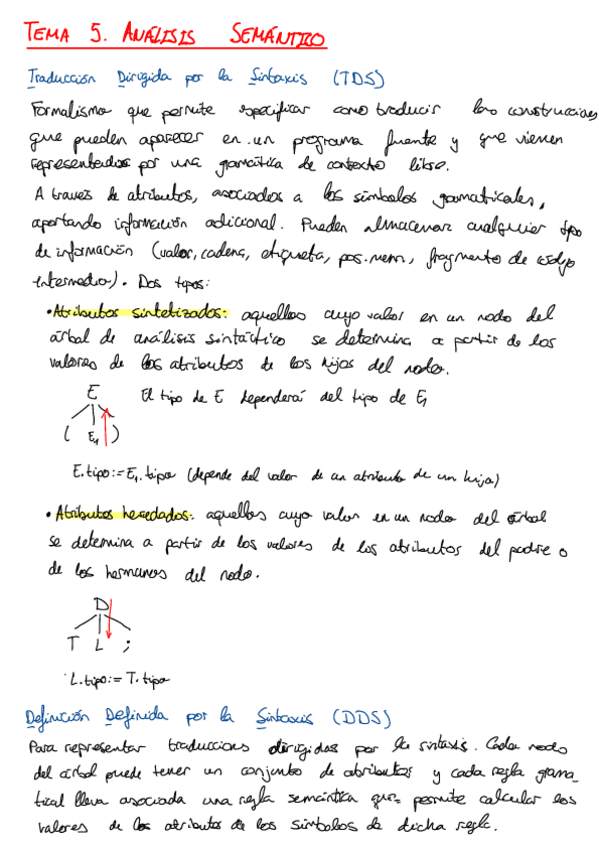 TEMA 5. ANÁLISIS SEMÁNTICO
Traducción Dirigida por la Sintaxis (TDS)
Formalismo que permite especificar como traducir las construcciones
que pueden aparecer en un programa fuente y que vienen
representadas por una gramática de contexto libre.
A traves de atributos, asociados a los símbolos gramaticales,
aportando información adicional. Pueden almacenar cualquier tipo
de información (valor, cadena, etiqueta, pos.mem, fragmento de código
intermedio). Dos tipos:
• Atributos sintetizados: aquellos cuyo valor en un nodo del
árbol de análisis sintáctico se determina a partir de los
valores de los atributos de los hijos del nodo.
E El tipo de E dependerá del tipo de E1
( E1 )
E.tipo:=E1.tipo (depende del valor de un atributo de un hijo)
• Atributos heredados: aquellos cuyo valor en un nodo del árbol
se determina a partir de los valores de los atributos del padre o
de los hermanos del nodo.
D
T L ;
L.tipo:= T.tipo
Definición Definida por la Sintaxis (DDS)
Para representar traducciones dirigidas por la sintaxis. Cada nodo
del arbol puede tener un conjunto de atributos y cada regla grama_
tical lleva asociada una regla semántica que permite calcular los
valores de los atributos de los símbolos de dicha regla.